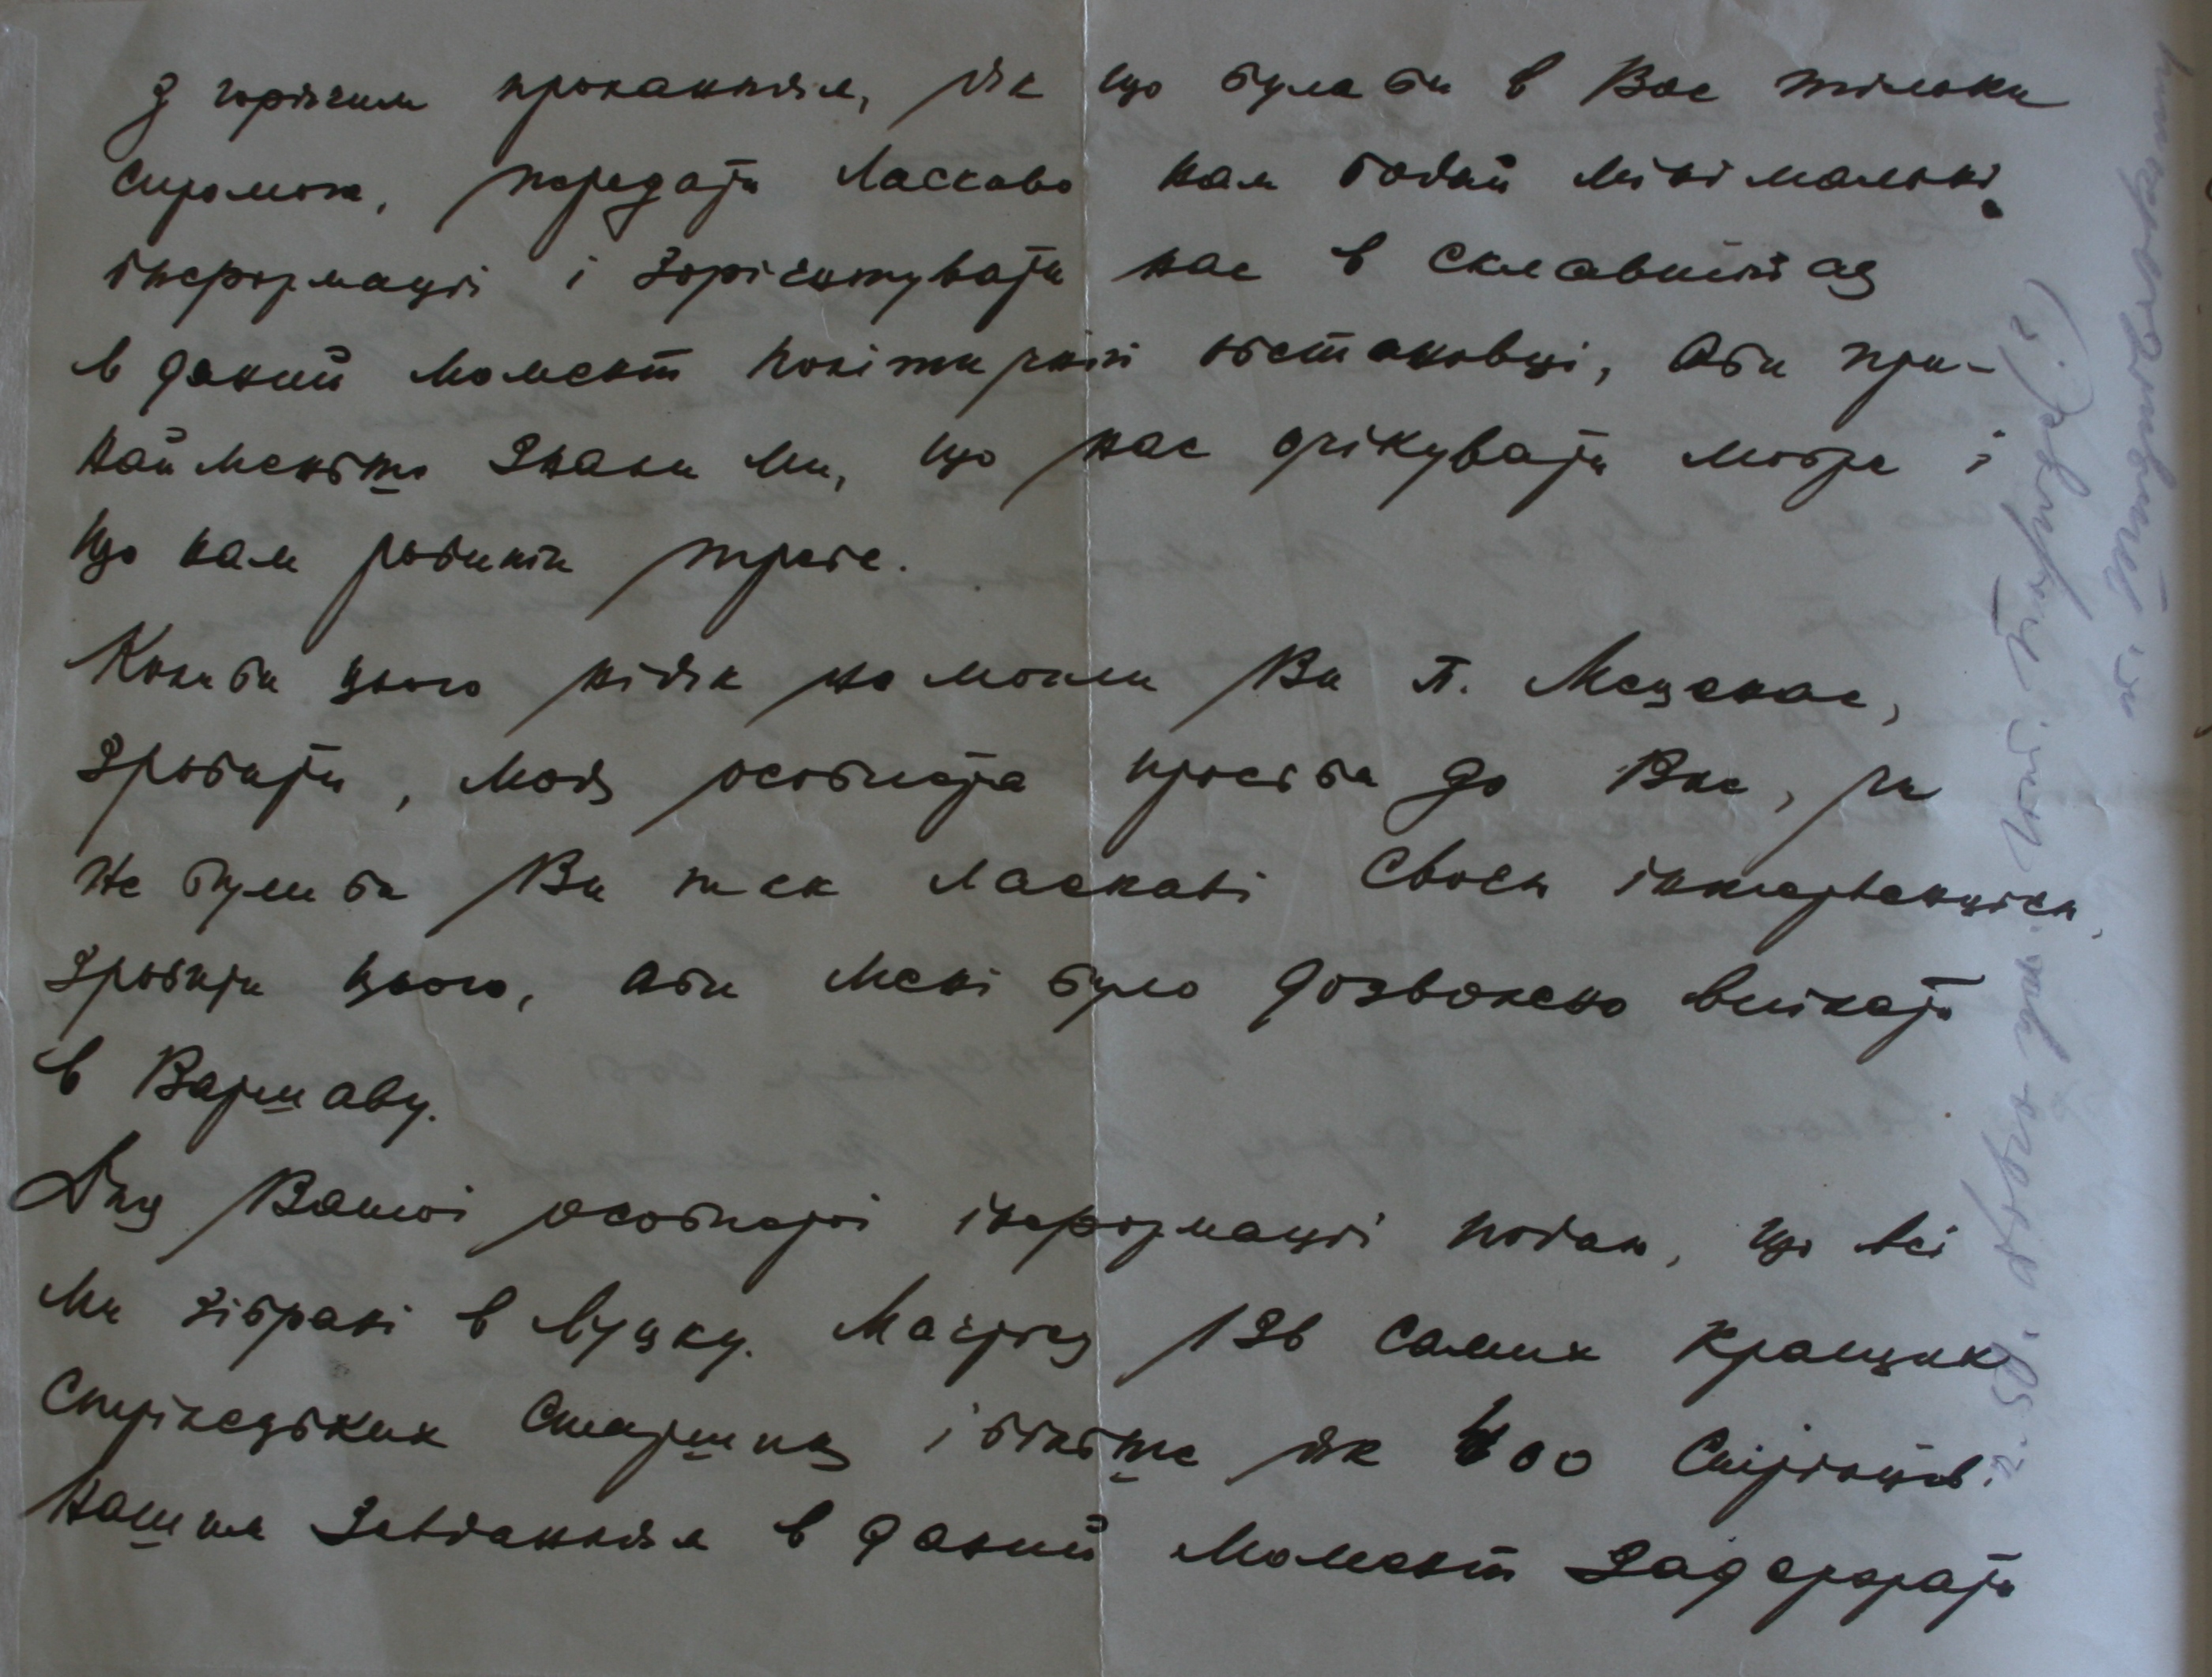 З горячим проханням, як що була би в Вас тільки
спромога, передати ласкаво нам бодай мінімальні
інформації і зорієнтувати нас в склавшійся
в даний момент політичній обстановці, аби при-
найменьше знали ми, що нас очікувати може і
що нам робити треба.
Коли би цього ніяк не могли Ви п. Меценас,
зробити, моя особиста просьба до Вас, чи
не були би Ви так ласкаві своєю інтервенцією
зробити цього, аби мені було дозволено виїхати
в Варшаву.
Для Вашої особистої інформації подаю, що всі
ми зібрані в Луцку. Маєм 136 самих кращих
Стрілецьких Старшин і більше як 400 Стрільців.
Нашим завданням в даний момент задержати